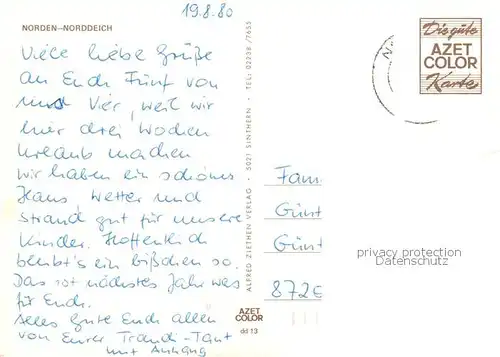 19.8.80
NORDEN—NORDDEICH
Viele liebe Grüße
an Euch Fünf von
uns Vier, weil wir
hier drei Wochen
Urlaub machen
wir haben ein schönes
Haus, Wetter und
Strand gut für unsere
Kinder. Hoffentlich
bleibt's ein bißchen so.
Das ist nächstes Jahr was
für Euch.
Alles Gute Euch allen
von Eurer Traudi-Tant
mit Anhang
ALFRED ZIETHEN VERLAG · 5021 SINTHERN · TEL: 02238 / 7655
Die gute
AZET
COLOR
Karte
Fam
Günt
Günt
872
privacy protection
Datenschutz
AZET
COLOR
dd 13